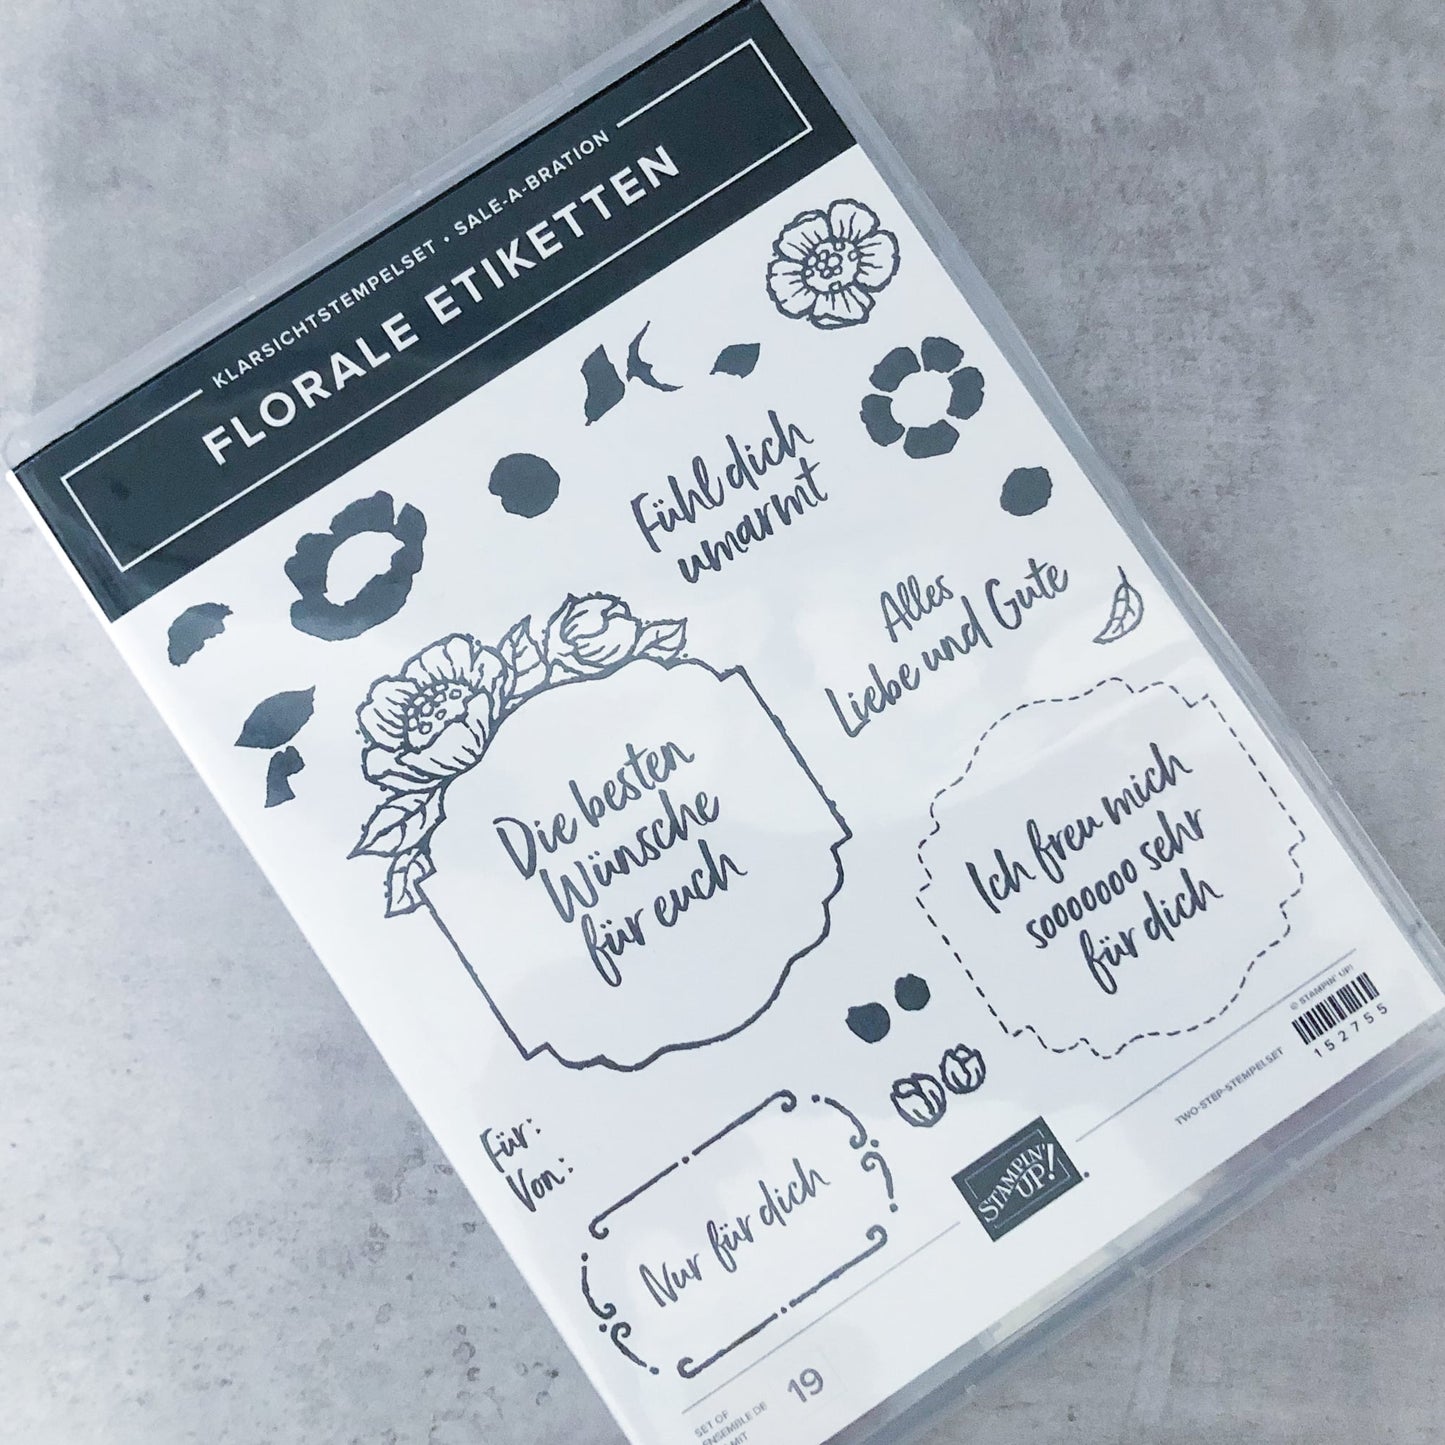 KLARSICHTSTEMPELSET • SALE-A-BRATION
FLORALE ETIKETTEN
Fühl dich
umarmt
Alles
Liebe und Gute
Die besten
Wünsche
für euch
Ich freu mich
sooooooo sehr
für dich
Für:
Von:
Nur für dich
STAMPIN'
UP!
© STAMPIN' UP!
152755
TWO-STEP-STEMPELSET
SET OF
ENSEMBLE DE
MIT
19